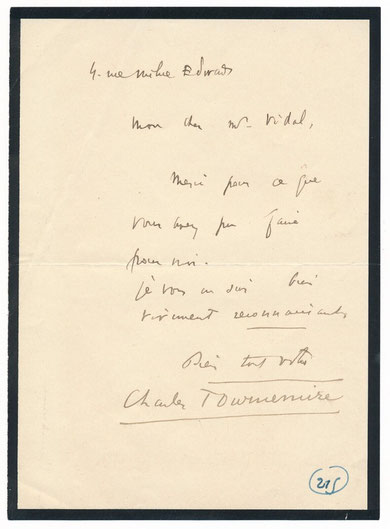 4. rue Milne Edwards
Mon cher Mr Vidal,
Merci pour ce que
vous avez pu faire
pour moi.
je vous en suis bien
vivement reconnaissant,
Bien tout vôtre
Charles TOurnemire
215